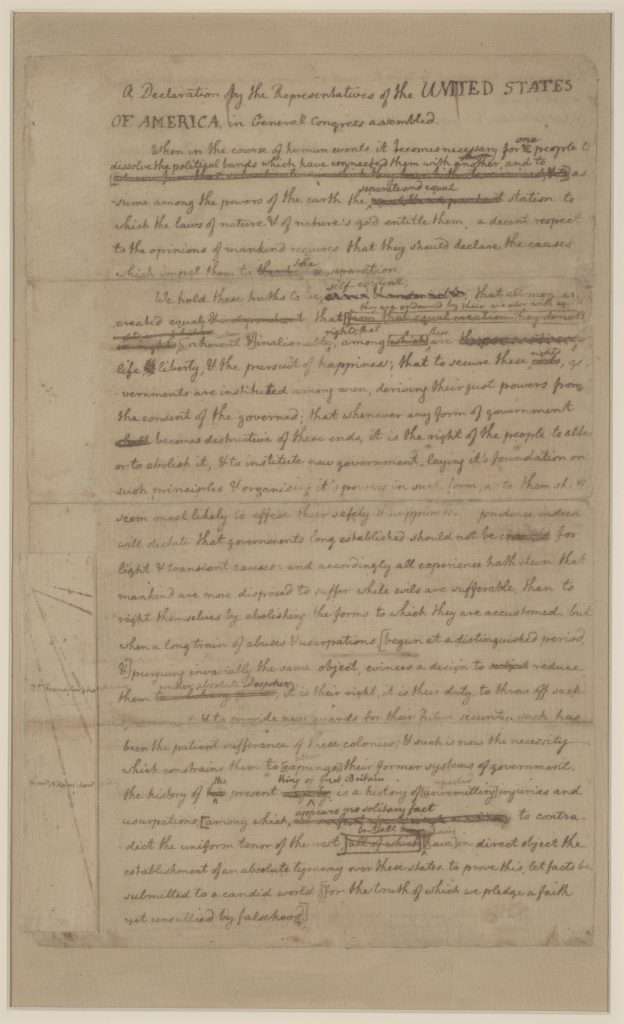 A Declaration by the Representatives of the UNITED STATES
OF AMERICA, in General Congress assembled.
When in the course of human events it becomes necessary for one people to
dissolve the political bands which have connected them with another, and to as
-sume among the powers of the earth the separate and equal station to
which the laws of nature & of nature's god entitle them, a decent respect
to the opinions of mankind requires that they should declare the causes
which impel them to the separation.
We hold these truths to be self-evident, that all men are
created equal that they are endowed by their creator with
rights that among these are
life liberty, & the pursuit of happiness; that to secure these rights, go
vernments are instituted among men, deriving their just powers from
the consent of the governed; that whenever any form of government
becomes destructive of these ends, it is the right of the people to alter
or to abolish it, & to institute new government, laying it's foundation on
such principles & organising it's powers in such form, as to them shall
seem most likely to effect their safety & happiness. prudence indeed
will dictate that governments long established should not be changed for
light & transient causes: and accordingly all experience hath shewn that
mankind are more disposed to suffer while evils are sufferable, than to
right themselves by abolishing the forms to which they are accustomed. but
when a long train of abuses & usurpations [begun at a distinguished period,
&] pursuing invariably the same object, evinces a design to reduce
them under absolute Despotism, it is their right, it is their duty, to throw off such
& to provide new guards for their future security. such has
been the patient sufferance of these colonies; & such is now the necessity
which constrains them to [expunge] their former systems of government.
the history of the present king of Great Britain is a history of [unremitting] injuries and
usurpations, [among which, appears no solitary fact to contra-
dict the uniform tenor of the rest [all of which] [have] in direct object the
establishment of an absolute tyranny over these states. to prove this, let facts be
submitted to a candid world [for the truth of which we pledge a faith
yet unsullied by falsehood]